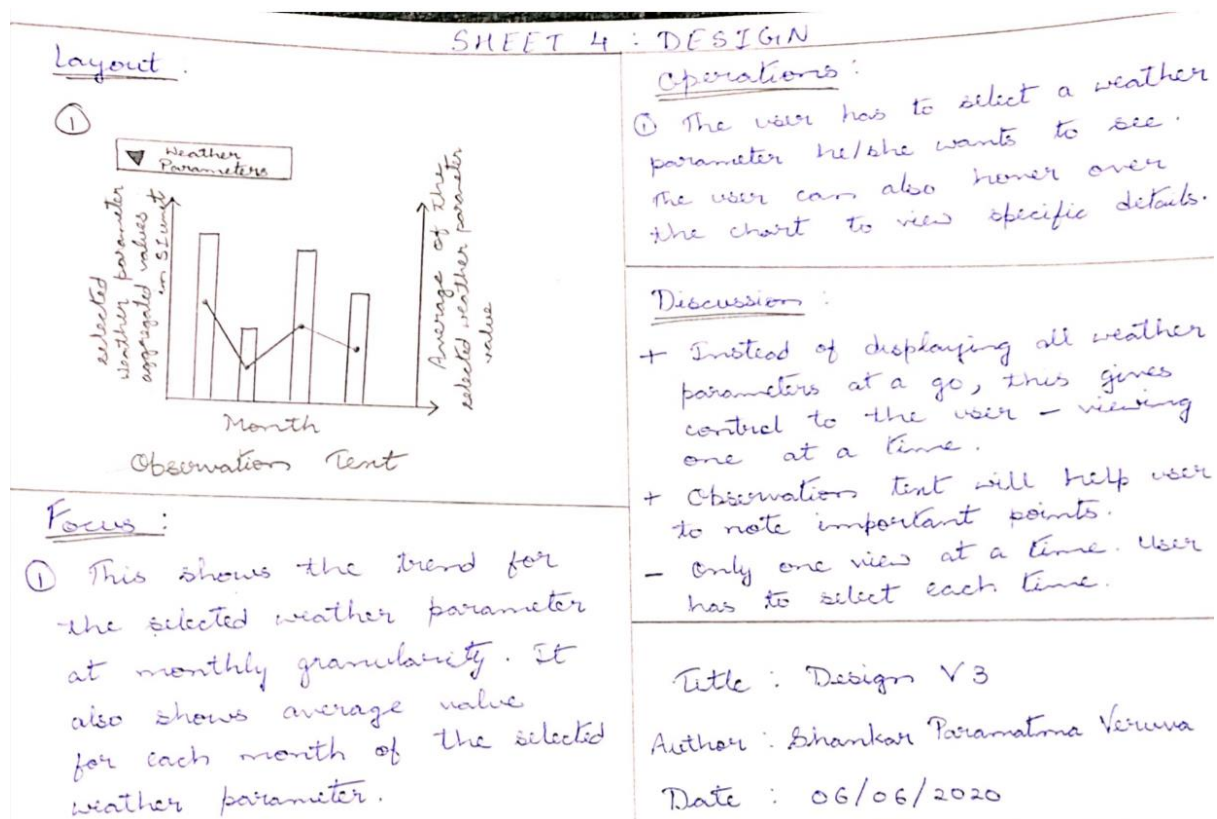 SHEET 4 : DESIGN
Layout .
①
Weather
Parameters
selected
weather parameter
aggregated values
in SI unit
Average of the
selected weather parameter
value
Month
Observation Text
Focus :
① This shows the trend for
the selected weather parameter
at monthly granularity. It
also shows average value
for each month of the selected
weather parameter.
Operations :
① The user has to select a weather
parameter he/she wants to see.
The user can also hover over
the chart to view specific details.
Discussion :
+ Instead of displaying all weather
parameters at a go, this gives
control to the user – viewing
one at a time.
+ Observation text will help user
to note important points.
- Only one view at a time. User
has to select each time.
Title : Design V3
Author : Shankar Paramatma Veruva
Date : 06/06/2020